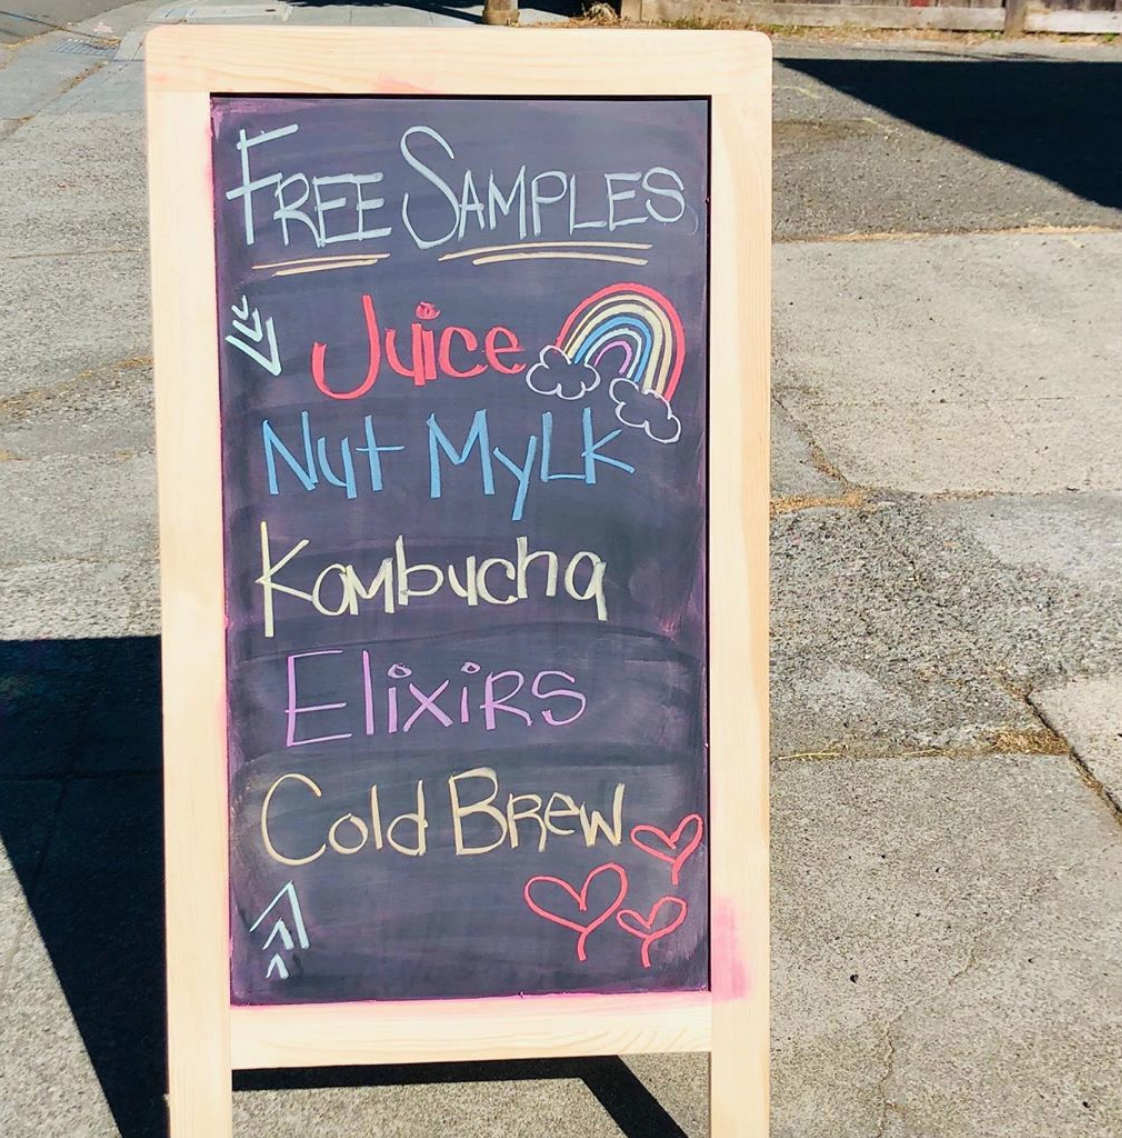 FREE SAMPLES
Juice
Nut MyLk
Kombucha
ElixiRS
Cold BRew